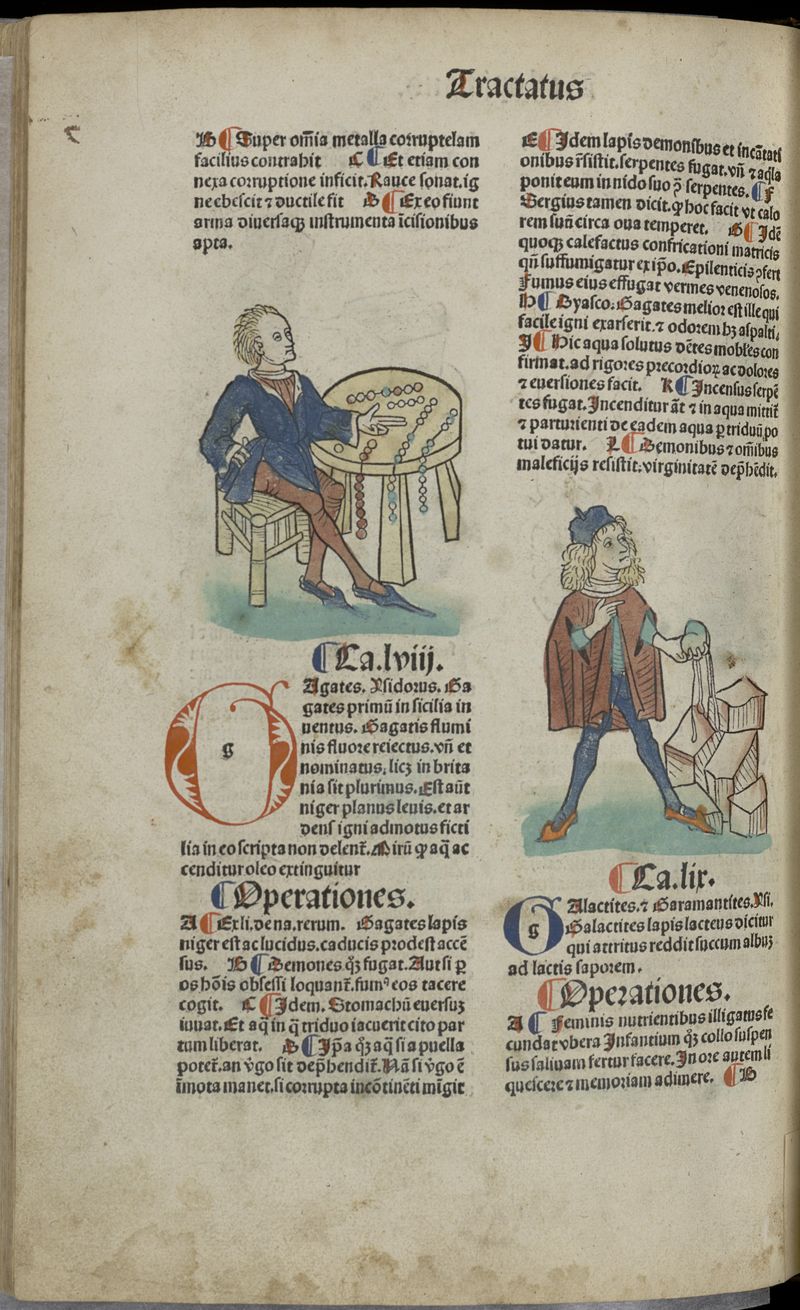 Tractatus
B ¶ Super om̄ia metalla corruptelam
facilius contrahit C ¶ Et etiam con
nexa corruptione inficit. Rauce sonat. ig
ne ebescit ⁊ ductile fit D ¶ Ex eo fiunt
arma diuersaqꝫ instrumenta īcisionibus
apta.
¶ Ca. lviij.
g
Agates. Ysidorus. Ga
gates primū in sicilia in
uentus. Gagatis flumi
nis fluore reiectus. vñ et
nominatus, licꝫ in brita
nia sit plurimus. Est aūt
niger planus leuis. et ar
dens igni admotus ficti
lia in eo scripta non delent̄. Mirū ꝙ aq̄ ac
cenditur oleo extinguitur
¶ Operationes.
A ¶ Ex li. de na. rerum. Gagates lapis
niger est ac lucidus. caducis prodest accē
sus. B ¶ Demones qꝫ fugat. Aut si ꝑ
os hoīs obsessi loquant̄. fumꝰ eos tacere
cogit. C ¶ Idem. Stomachū euersuꝫ
iuuat. Et aq̄ in q̄ triduo iacuerit cito par
tum liberat. D ¶ Ip̄a qꝫ aq̄ si a puella
potet̄. an v̄go sit dep̄hendit̄. Nā si v̄go ē
īmota manet. si corrupta incōtinēti mīgit
E ¶ Idem lapis demonibus et incātati
onibus r̄sistit. serpentes fugat. vñ ⁊ aq̄la
ponit eum in nido suo ꝓ serpentes. ¶ F
Sergius tamen dicit. ꝙ hoc facit vt calo
rem suū circa oua temperet. G ¶ Idē
quoqꝫ calefactus confricationi matricis
qñ suffumigatur ex ip̄o. Epilenticis ꝯfert
Fumus eius effugat vermes venenosos.
H ¶ Dyasco. Gagates melior est ille qui
facile igni exarserit. ⁊ odorem hꝫ aspalti.
I ¶ Hic aqua solutus dētes mobiles con
firmat. ad rigores precordioꝝ ac dolores
⁊ euersiones facit. K ¶ Incensus serpē
tes fugat. Incenditur āt ⁊ in aqua mittit̄
⁊ parturienti de eadem aqua ꝑ triduū po
tui datur. L ¶ Demonibus ⁊ om̄ibus
maleficijs resistit. virginitatē dep̄hēdit.
¶ Ca. lix.
g
Alactites. ⁊ Garamantites. Ysi.
Galactites lapis lacteus dicitur
qui attritus reddit succum albuꝫ
ad lactis saporem.
¶ Operationes.
A ¶ Feminis nutrientibus illigatus fe
cundat vbera Infantium qꝫ collo suspen
sus saliuam fertur facere. In ore autem li
quescere ⁊ memoriam adimere. ¶ B